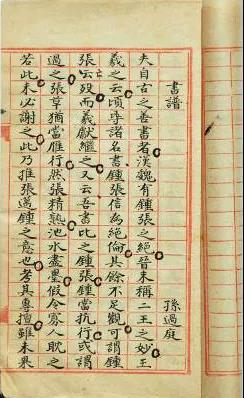 書譜 孫過庭
夫自古之善書者漢魏有鍾張之絕晉末稱二王之妙王
羲之云頃尋諸名書鍾張信為絕倫其餘不足觀可謂鍾
張云歿而羲獻繼之又云吾書比之鍾張鍾當抗行或謂
過之張草猶當雁行然張精熟池水盡墨假令寡人耽之
若此未必謝之此乃推張邁鍾之意也考其專擅雖未果